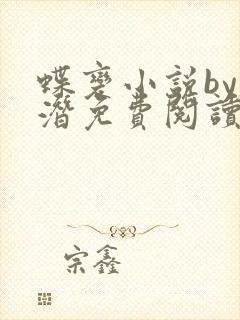 蝶変小説by
潛免費閱讀
宗鑫